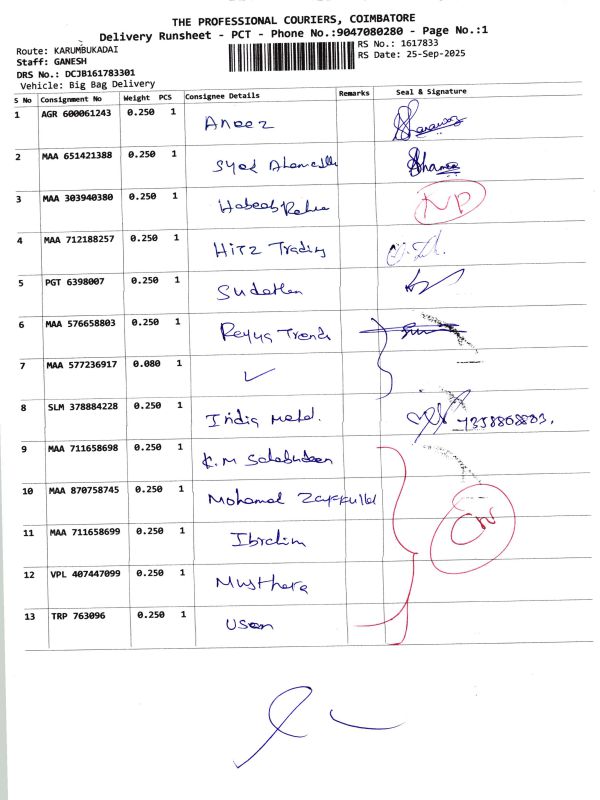 THE PROFESSIONAL COURIERS, COIMBATORE
Delivery Runsheet - PCT - Phone No.:9047080280 - Page No.:1
Route: KARUMBUKADAI
RS No.: 1617833
Staff: GANESH
RS Date: 25-Sep-2025
DRS No.: DCJB161783301
Vehicle: Big Bag Delivery
S No Consignment No Weight PCS Consignee Details Remarks Seal & Signature
1 AGR 600061243 0.250 1 Aneez
2 MAA 651421388 0.250 1 Syed
3 MAA 303940380 0.250 1 Habeeb NP
4 MAA 712188257 0.250 1 Hitz Trading
5 PGT 6398007 0.250 1
6 MAA 576658803 0.250 1 Trends
7 MAA 577236917 0.080 1
8 SLM 378884228 0.250 1 India
9 MAA 711658698 0.250 1 K.M Salabudeen
10 MAA 870758745 0.250 1 Mohamed
11 MAA 711658699 0.250 1 Ibrahim
12 VPL 407447099 0.250 1
13 TRP 763096 0.250 1